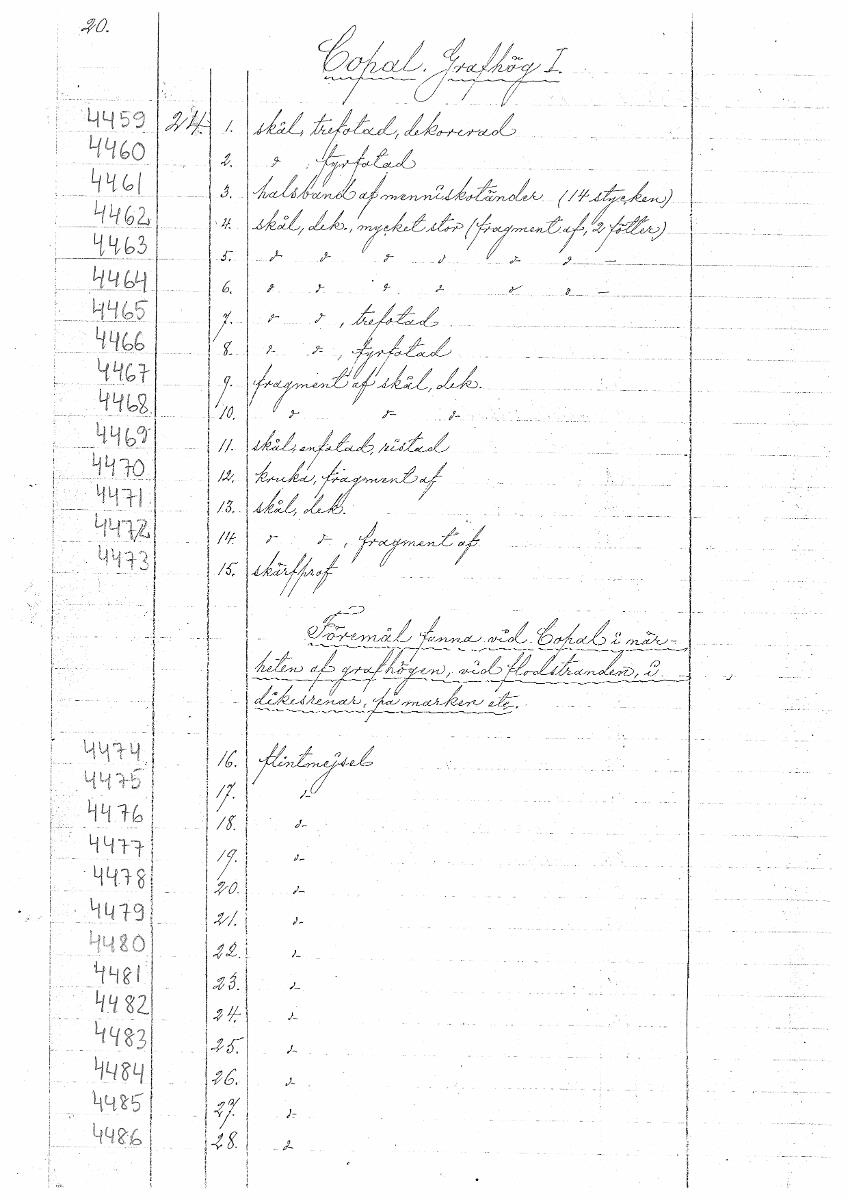 20.
Copal. Grafhög I.
4459 24. 1. skål, trefotad, dekorerad
4460 2. " , fyrfotad
4461 3. halsband af menniskotänder (14 stycken)
4462 4. skål, dek., mycket stor (fragment af, 2 fötter)
4463 5. " " " " " " –
4464 6. " " " " " " –
4465 7. " " , trefotad
4466 8. " " , fyrfotad
4467 9. fragment af skål, dek.
4468 10. " " "
4469 11. skål, enfotad, ristad
4470 12. kruka, fragment af
4471 13. skål, dek.
4472 14. " " , fragment af
4473 15. skärfprof
Föremål funna vid Copal i när-
heten af grafhögen, vid flodstranden, i
dikesrenar, på marken etc.
4474 16. flintmejsel
4475 17. "
4476 18. "
4477 19. "
4478 20. "
4479 21. "
4480 22. "
4481 23. "
4482 24. "
4483 25. "
4484 26. "
4485 27. "
4486 28. "